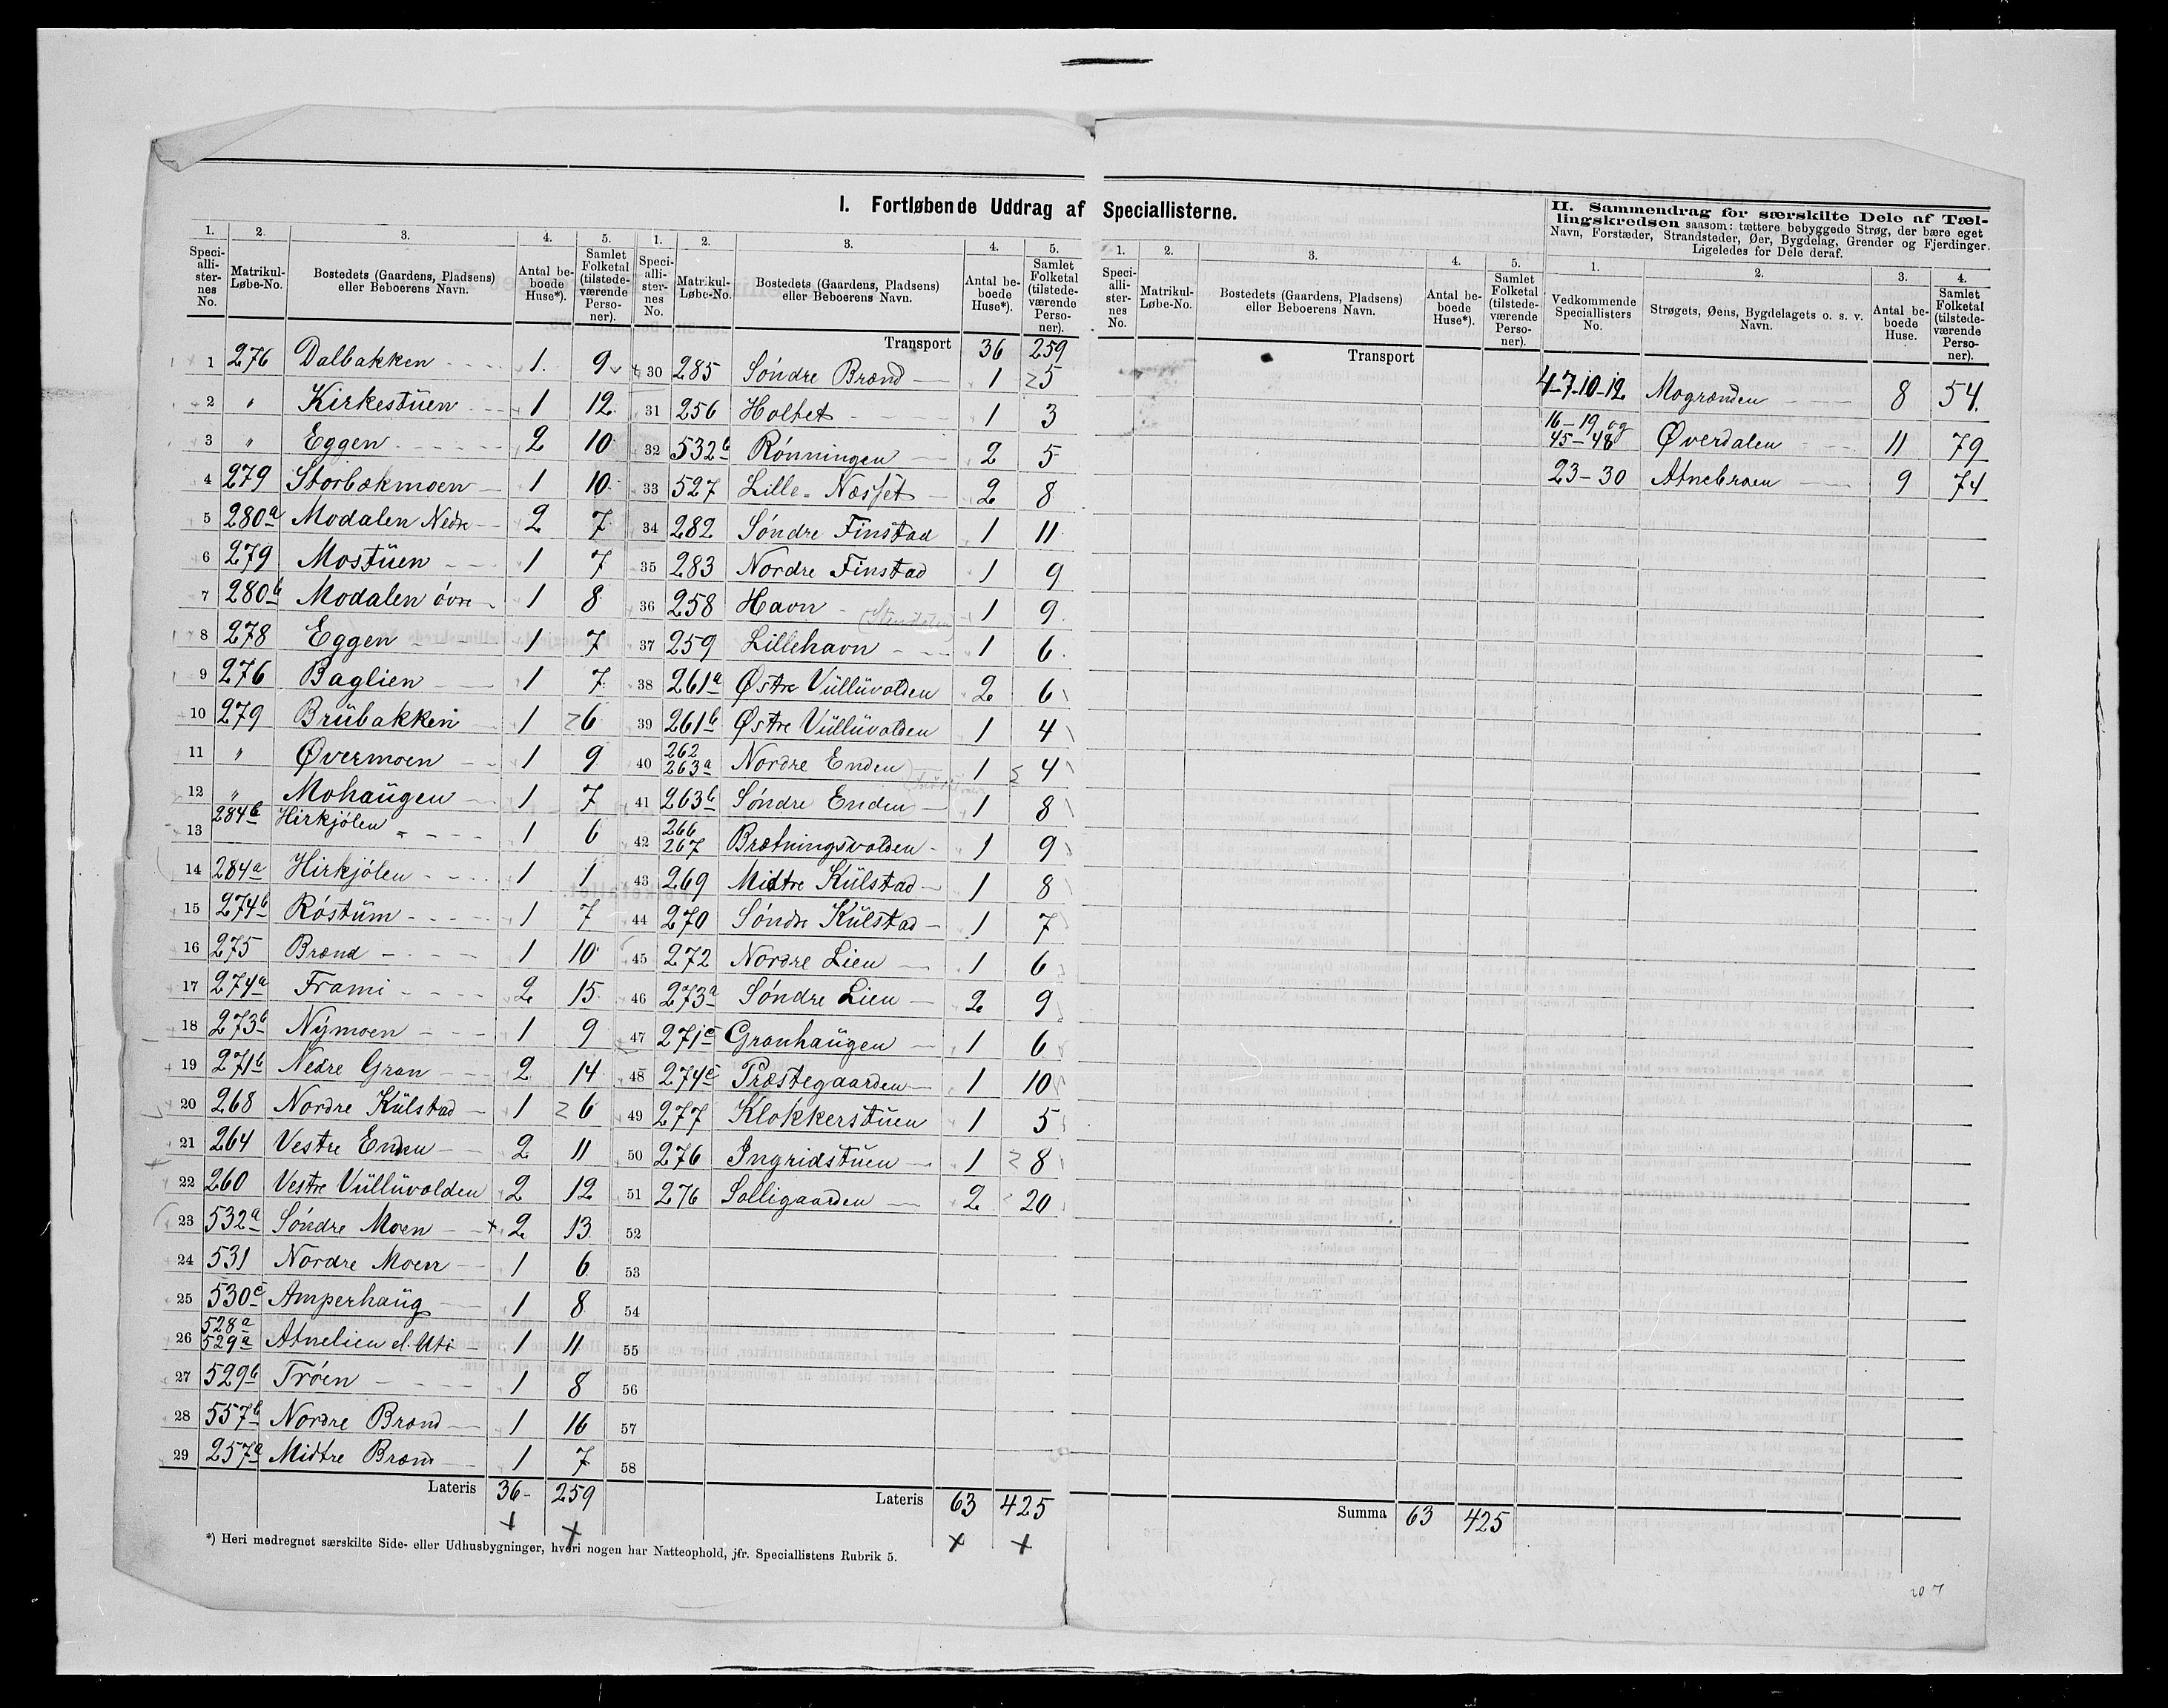 I. Fortløbende Uddrag af Speciallisterne.
1. 2. 3. 4. 5.
Speci-alli-ster-nes No. Matrikul-Løbe-No. Bostedets (Gaardens, Pladsens) eller Beboerens Navn. Antal be-boede Huse*). Samlet Folketal (tilstede-værende Perso-ner).
1 276 Dalbakken 1 9
2 " Kirkestuen 1 12
3 " Eggen 2 10
4 279 Storbækmoen 1 10
5 280a Modalen Nedre 2 7
6 279 Mostuen 1 7
7 280b Modalen övre 1 8
8 278 Eggen 1 7
9 276 Baglien 1 7
10 279 Brubakken 1 6
11 " Øvermoen 1 9
12 " Mohaugen 1 7
13 284b Hirkjölen 1 6
14 284a Hirkjölen 1 1
15 274b Röstum 1 7
16 275 Brænd 1 10
17 274a Frami 2 15
18 273b Nymoen 1 9
19 271b Nedre Gran 2 14
20 268 Nordre Kulstad 1 6
21 264 Vestre Enden 2 11
22 260 Vestre Vulluvolden 2 12
23 532a Söndre Moen 2 13
24 531 Nordre Moen 1 6
25 530c Amperhaug 1 8
26 528a 529a Atnelien el. Uti 1 11
27 529b Tröen 1 8
28 557b Nordre Brænd 1 16
29 257a Midtre Brænd 1 7
Lateris 36 259
1. 2. 3. 4. 5.
Speci-alli-ster-nes No. Matrikul-Løbe-No. Bostedets (Gaardens, Pladsens) eller Beboerens Navn. Antal be-boede Huse*). Samlet Folketal (tilstede-værende Perso-ner).
Transport 36 259
30 285 Söndre Brænd 1 5
31 256 Holtet 1 3
32 532b Rönningen 2 5
33 527 Lille-Næsset 2 8
34 282 Söndre Finstad 1 11
35 283 Nordre Finstad 1 9
36 258 Havn 1 9
37 259 Lillehavn 1 6
38 261a Østre Vulluvolden 2 6
39 261b Østre Vulluvolden 1 4
40 262 263a Nordre Enden 1 4
41 263b Söndre Enden 1 8
42 266 267 Brætningsvolden 1 9
43 269 Midtre Kulstad 1 8
44 270 Söndre Kulstad 1 7
45 272 Nordre Lien 1 6
46 273a Söndre Lien 2 9
47 271c Granhaugen 1 6
48 274c Præstegaarden 1 10
49 277 Klokkerstuen 1 5
50 276 Ingridstuen 1 8
51 276 Solligaarden 2 20
52
53
54
55
56
57
58
Lateris 63 425
*) Heri medregnet særskilte Side- eller Udhusbygninger, hvori nogen har Natteophold, jfr. Speciallistens Rubrik 5.
1. 2. 3. 4. 5.
Speci-alli-ster-nes No. Matrikul-Løbe-No. Bostedets (Gaardens, Pladsens) eller Beboerens Navn. Antal be-boede Huse*). Samlet Folketal (tilstede-værende Perso-ner).
Transport
Summa 63 425
II. Sammendrag for særskilte Dele af Tæl-
lingskredsen saasom: tættere bebyggede Strøg, der bære eget
Navn, Forstæder, Strandsteder, Øer, Bygdelag, Grender og Fjerdinger.
Ligeledes for Dele deraf.
1. 2. 3. 4.
Vedkommende Speciallisters No. Strøgets, Øens, Bygdelagets o. s. v. Navn. Antal be-boede Huse. Samlet Folketal (tilstede-værende Perso-ner).
4-7.10-12 Mogrænden 8 54
16-19 og 45-48 Øverdalen 11 79
23-30 Atnebroen 9 74
207